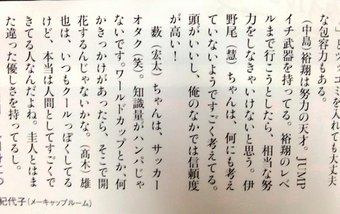 」とツッコミを入れても大丈夫
な包容力もある。
(中島)裕翔は努力の天才。JUMP
イチ武器を持ってる。裕翔のレベ
ルまで行こうとしたら、相当な努
力をしなきゃいけないと思う。伊
野尾(慧)ちゃんは、何にも考え
ていないようですごく考えてる。
頭がいいし、俺のなかでは信頼度
が高い!
薮(宏太)ちゃんは、サッカー
オタク(笑)。知識量がハンパじゃ
ないです。ワールドカップとか、何
かきっかけがあったら、そこで開
花するんじゃないかな。(高木)雄
也は、いつもクールっぽくしてる
けど、本当は人間としてすごくで
きてる人なんだよね。圭人とはま
た違った優しさを持ってるし。
紀代子(メーキャップルーム)